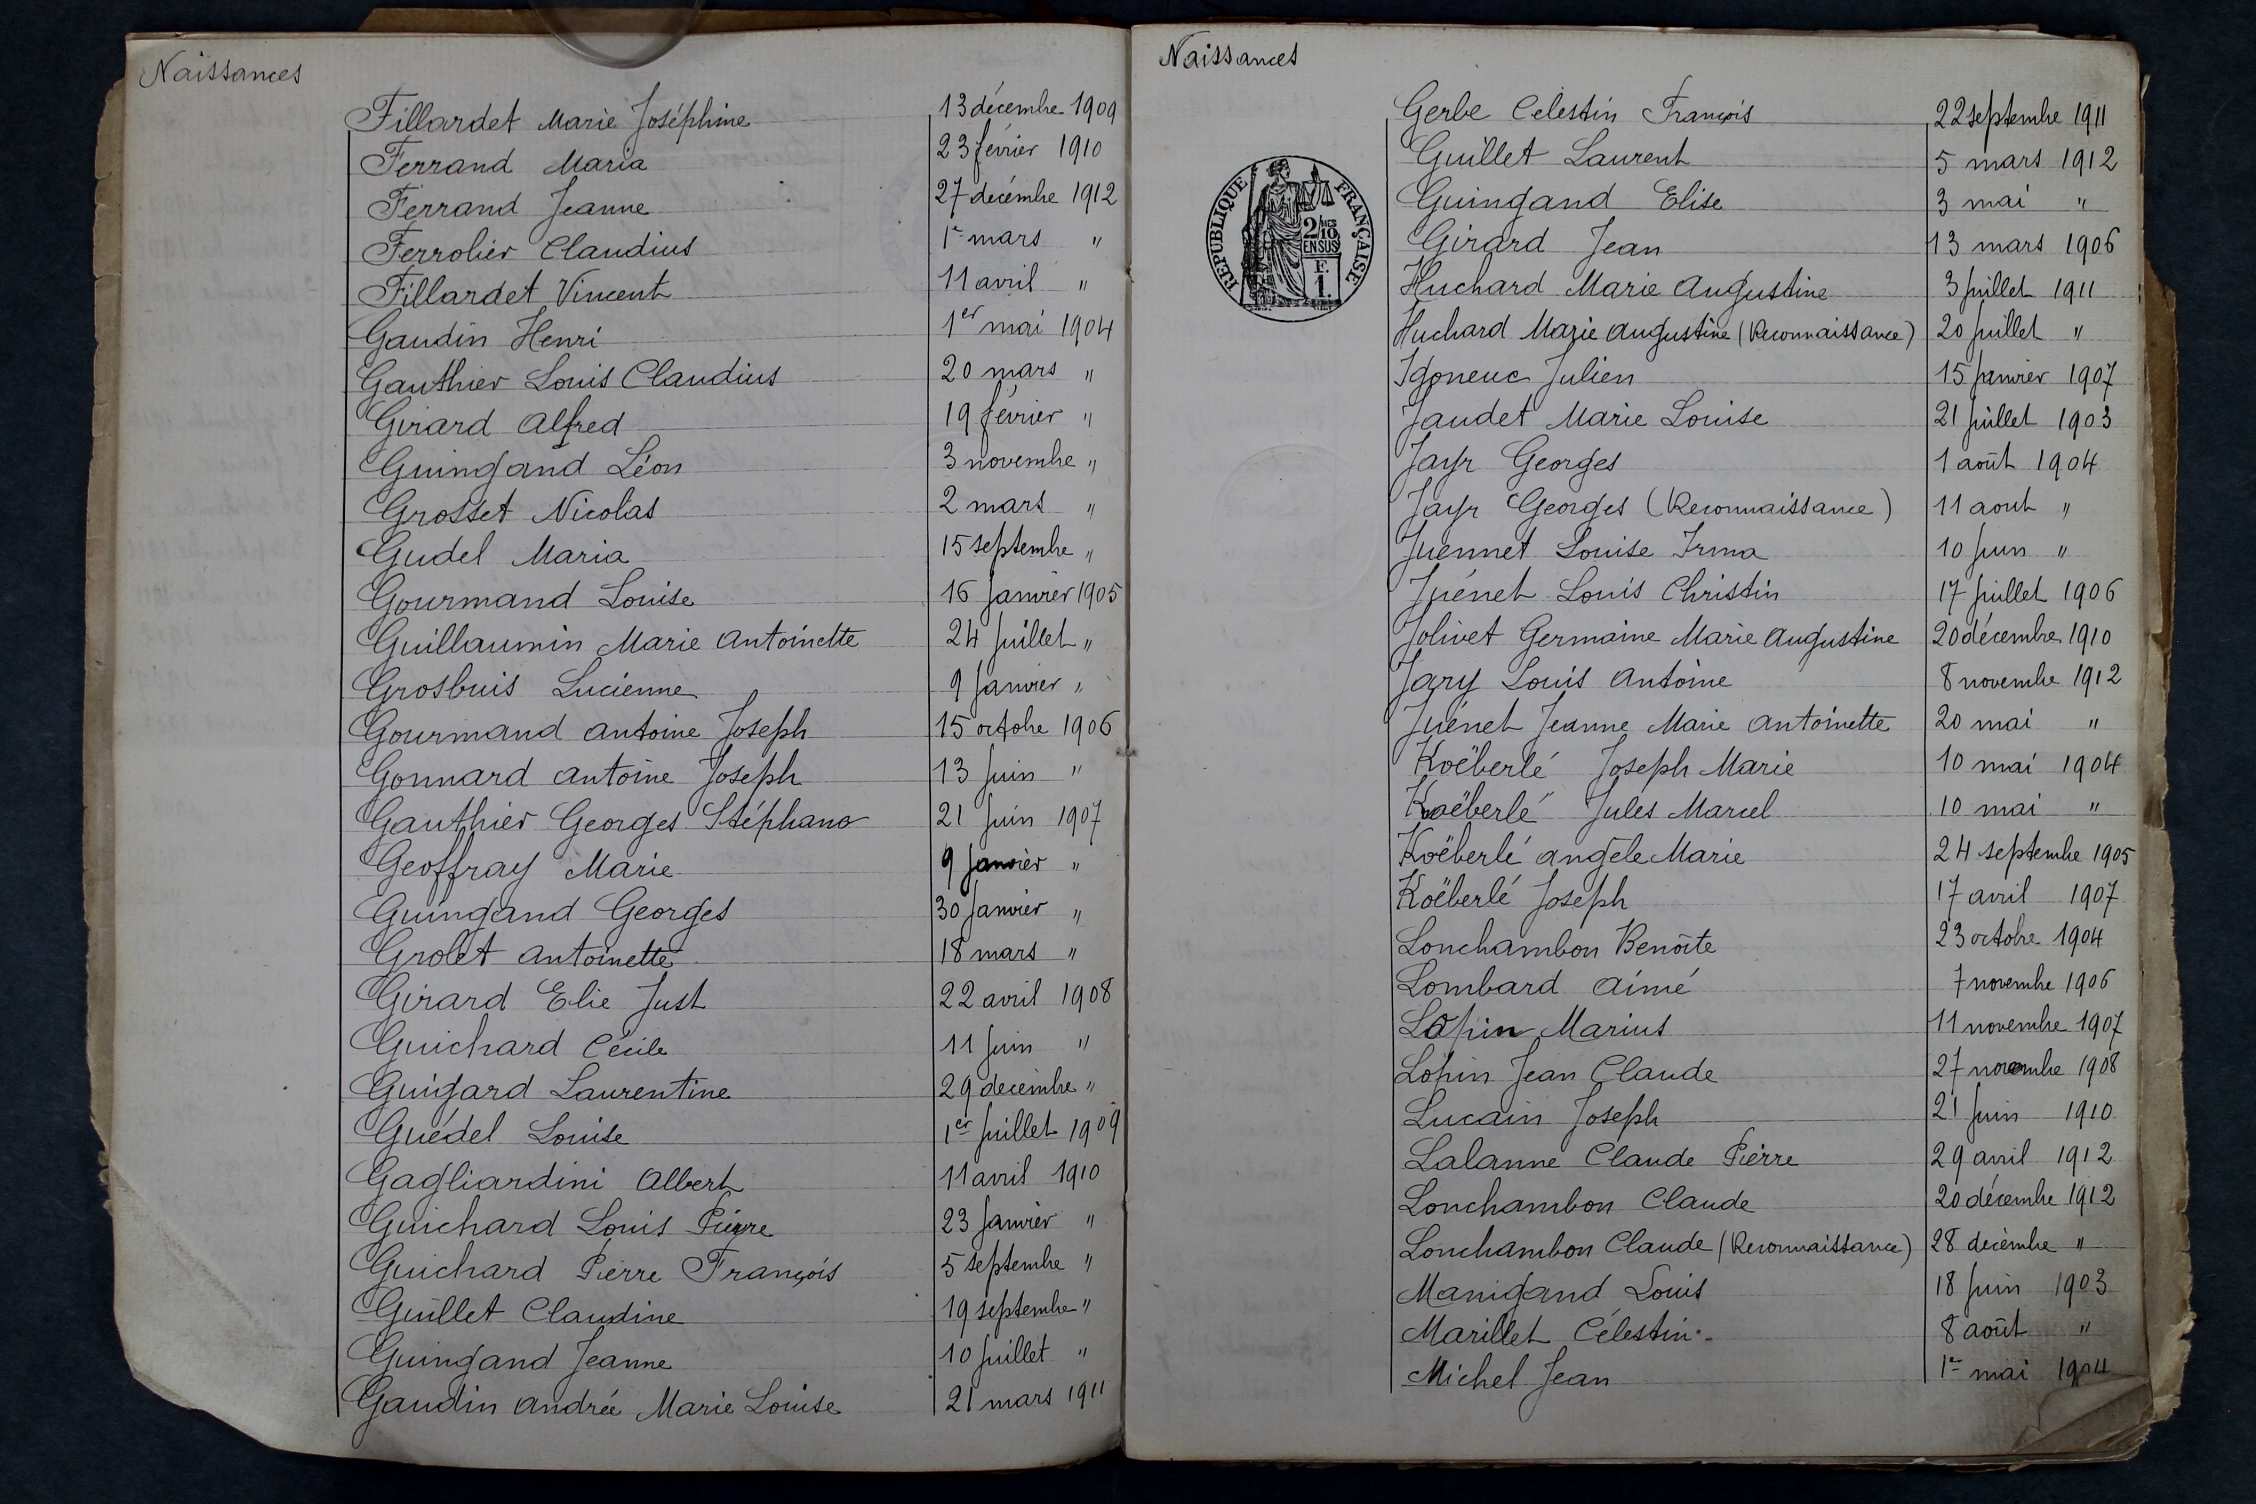 Naissances
Fillardet Marie Joséphine 13 décembre 1909
Ferrand Maria 23 février 1910
Ferrand Jeanne 27 décembre 1912
Ferrolier Claudius 1er mars "
Fillardet Vincent 11 avril "
Gaudin Henri 1er mai 1904
Gauthier Louis Claudius 20 mars "
Girard Alfred 19 février "
Guingand Léon 3 novembre "
Grosset Nicolas 2 mars "
Gudel Maria 15 septembre "
Gourmand Louise 16 janvier 1905
Guillaumin Marie Antoinette 24 juillet "
Grosbuis Lucienne 9 janvier "
Gourmand Antoine Joseph 15 octobre 1906
Gonnard Antoine Joseph 13 juin "
Gauthier Georges Stéphane 21 juin 1907
Geoffray Marie 9 janvier "
Guingand Georges 30 janvier "
Grolet Antoinette 18 mars "
Girard Elie Just 22 avril 1908
Guichard Cécile 11 juin "
Guigard Laurentine 29 décembre "
Guédel Louise 1er juillet 1909
Gagliardini Albert 11 avril 1910
Guichard Louis Pierre 23 janvier "
Guichard Pierre François 5 septembre "
Guillet Claudine 19 septembre "
Guingand Jeanne 10 juillet "
Gaudin Andrée Marie Louise 21 mars 1911
Naissances
RÉPUBLIQUE FRANÇAISE
2/10
EN SUS
F.
1.
Gerbe Célestin François 22 septembre 1911
Guillet Laurent 5 mars 1912
Guingand Elise 3 mai "
Girard Jean 13 mars 1906
Huchard Marie Augustine 3 juillet 1911
Huchard Marie Augustine (Reconnaissance) 20 juillet "
Igoneuc Julien 15 janvier 1907
Jaudet Marie Louise 21 juillet 1903
Jayr Georges 1 août 1904
Jayr Georges (Reconnaissance) 11 aout "
Juennet Louise Irma 10 juin "
Juénet Louis Christin 17 juillet 1906
Jolivet Germaine Marie Augustine 20 décembre 1910
Jary Louis Antoine 8 novembre 1912
Juénet Jeanne Marie Antoinette 20 mai "
Koëberlé Joseph Marie 10 mai 1904
Koëberlé Jules Marcel 10 mai "
Koëberlé Angèle Marie 24 septembre 1905
Koëberlé Joseph 17 avril 1907
Lonchambon Benoîte 23 octobre 1904
Lombard Aimé 7 novembre 1906
Lopin Marius 11 novembre 1907
Lopin Jean Claude 27 novembre 1908
Lucain Joseph 21 juin 1910
Lalanne Claude Pierre 29 avril 1912
Lonchambon Claude 20 décembre 1912
Lonchambon Claude (Reconnaissance) 28 décembre "
Manigand Louis 18 juin 1903
Marillet Célestin 8 août "
Michel Jean 1er mai 1904